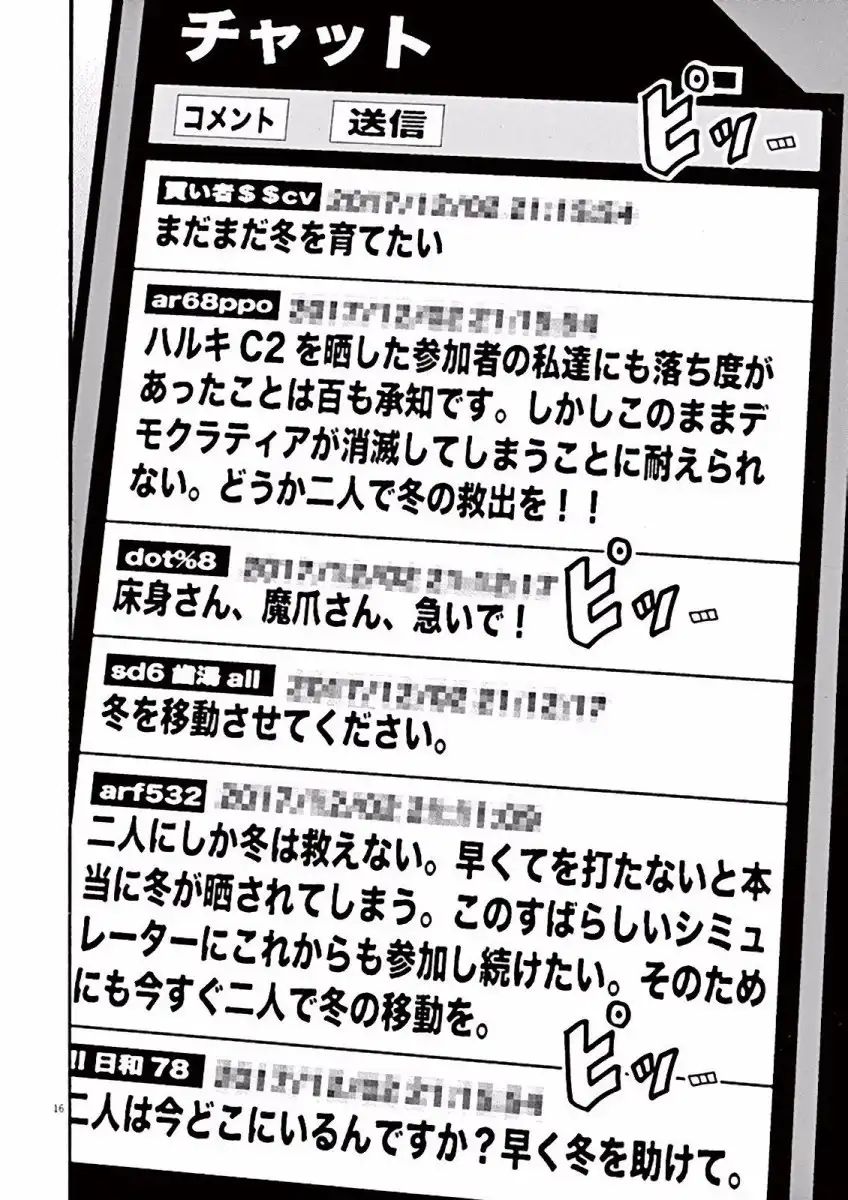 チャット
コメント 送信
ピッ
買い者$$cv
まだまだ冬を育てたい
ar68ppo
ハルキC2を晒した参加者の私達にも落ち度が
あったことは百も承知です。しかしこのままデ
モクラティアが消滅してしまうことに耐えられ
ない。どうか二人で冬の救出を!!
dot%8
床身さん、魔爪さん、急いで!
ピッ
sd6歯湯all
冬を移動させてください。
arf532
二人にしか冬は救えない。早くてを打たないと本
当に冬が晒されてしまう。このすばらしいシミュ
レーターにこれからも参加し続けたい。そのため
にも今すぐ二人で冬の移動を。
ピッ
!!日和78
二人は今どこにいるんですか?早く冬を助けて。
16